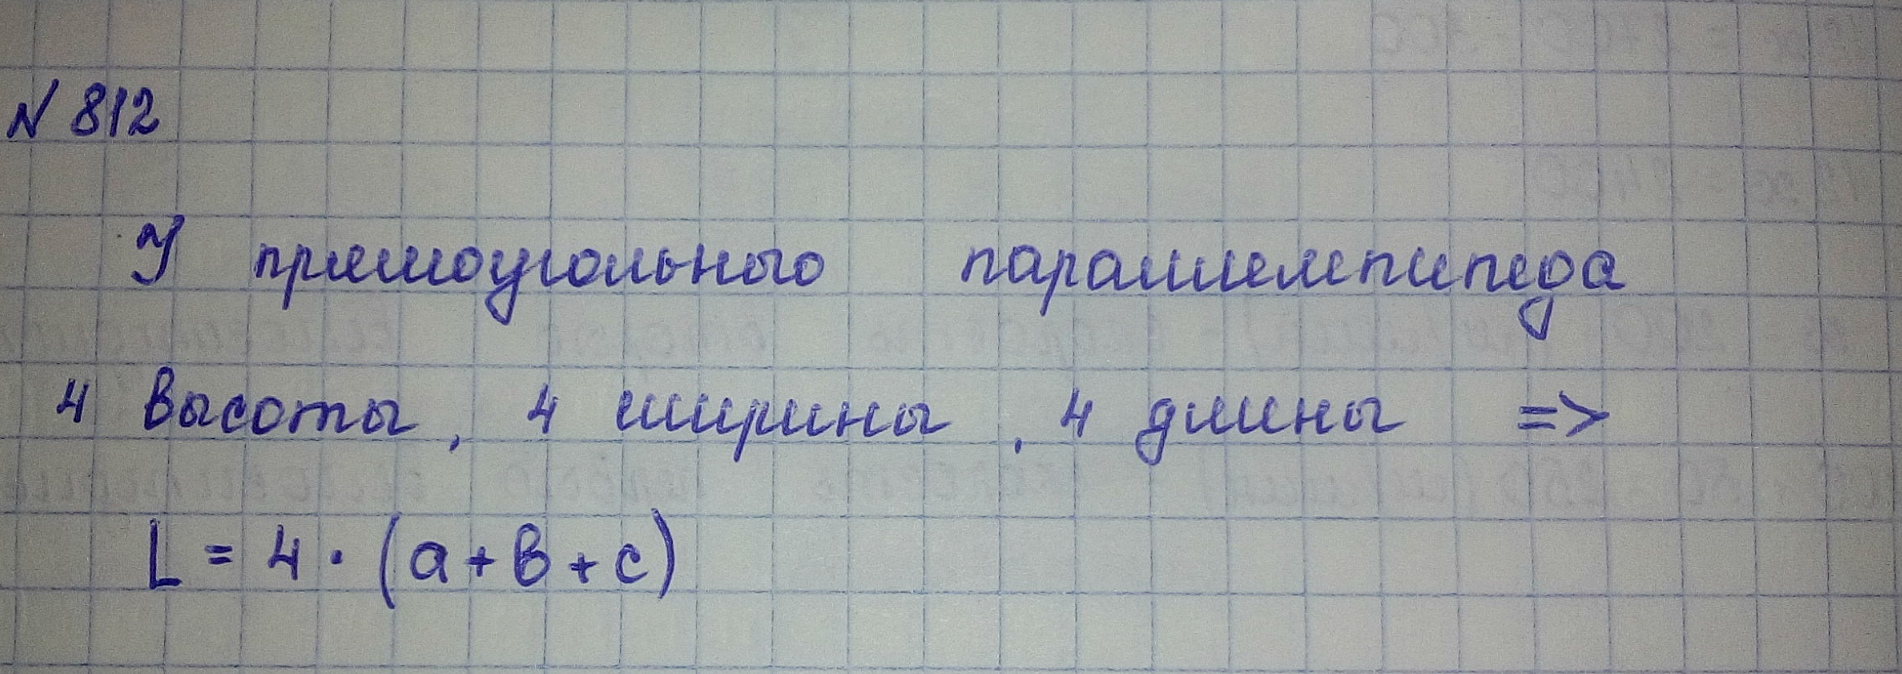 N 812
У прямоугольного параллелепипеда
4 высоты, 4 ширины, 4 длины =>
L = 4 · (a + b + c)